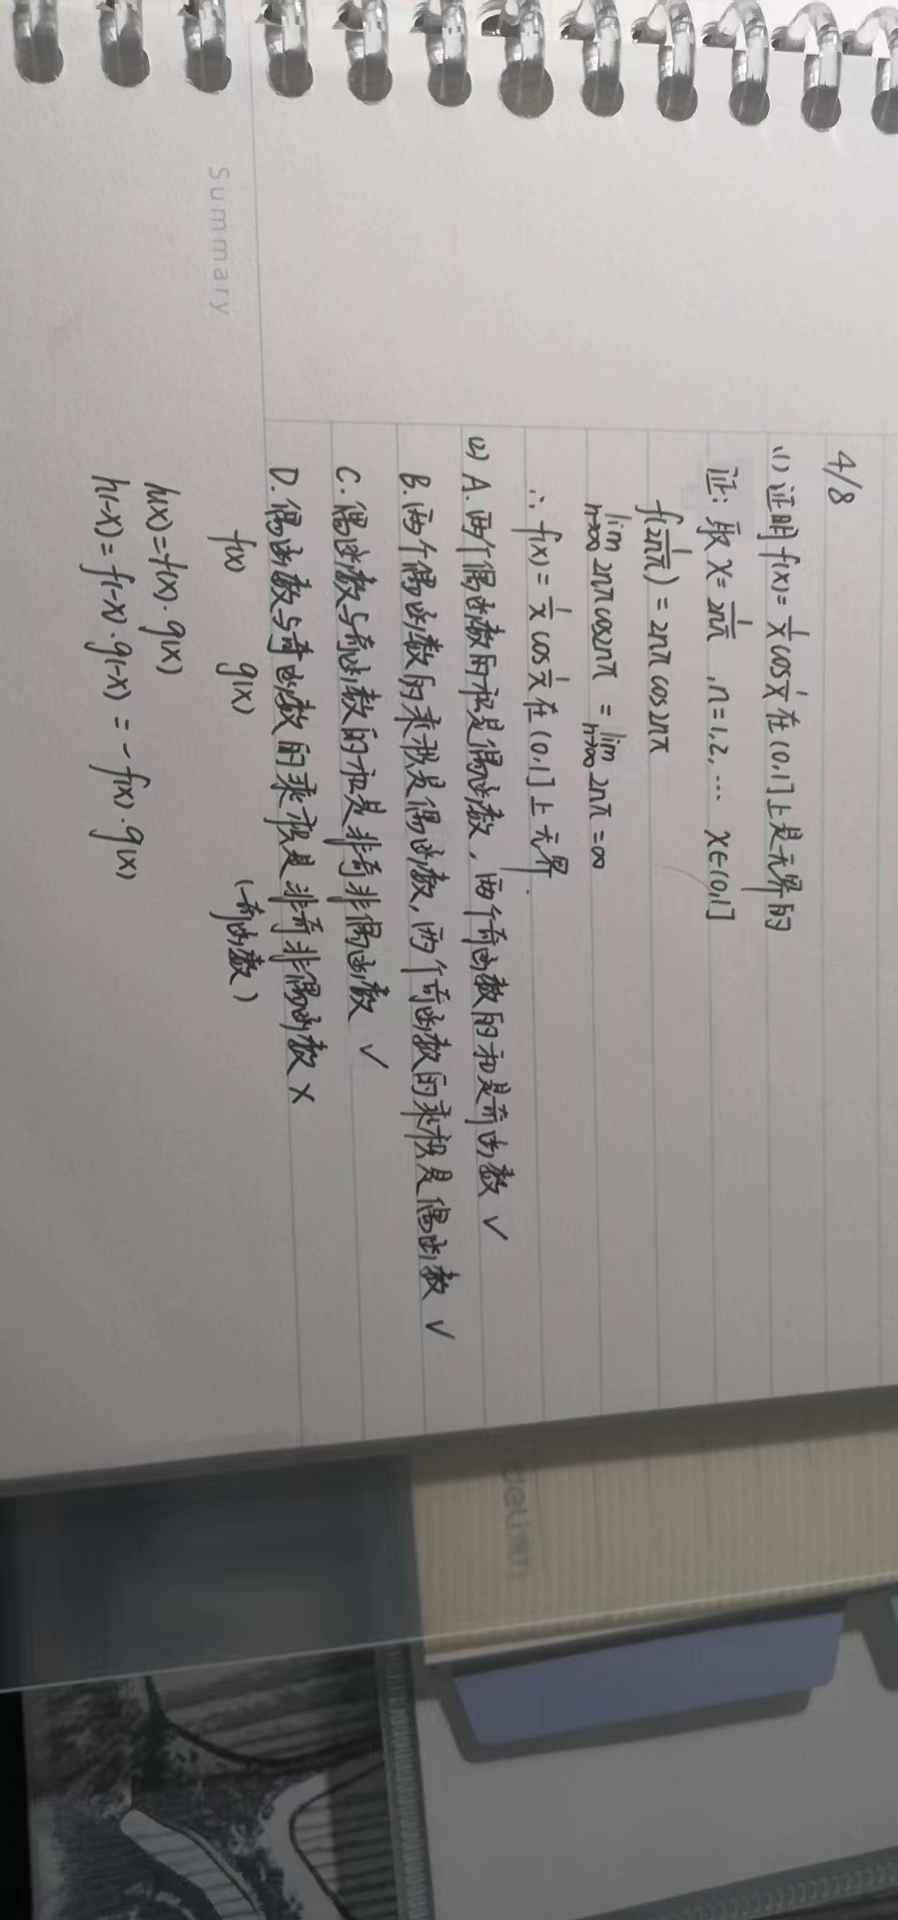 4/8
(1) 证明 f(x)=1/x cos 1/x 在 (0,1] 上是无界的
证: 取 x=1/2nπ , n=1,2,… x∈(0,1]
f(1/2nπ) = 2nπ cos2nπ
lim n→∞ 2nπ cos2nπ = lim n→∞ 2nπ = ∞
∴ f(x) = 1/x cos 1/x 在 (0,1] 上无界.
(2) A. 两个偶函数的和是偶函数, 两个奇函数的和是奇函数 ✓
B. 两个偶函数的乘积是偶函数, 两个奇函数的乘积是偶函数 ✓
C. 偶函数与奇函数的和是非奇非偶函数 ✓
D. 偶函数与奇函数的乘积是非奇非偶函数 ×
f(x) g(x) (奇函数)
h(x)=f(x)·g(x)
h(-x)=f(-x)·g(-x) = -f(x)·g(x)
Summary
deli